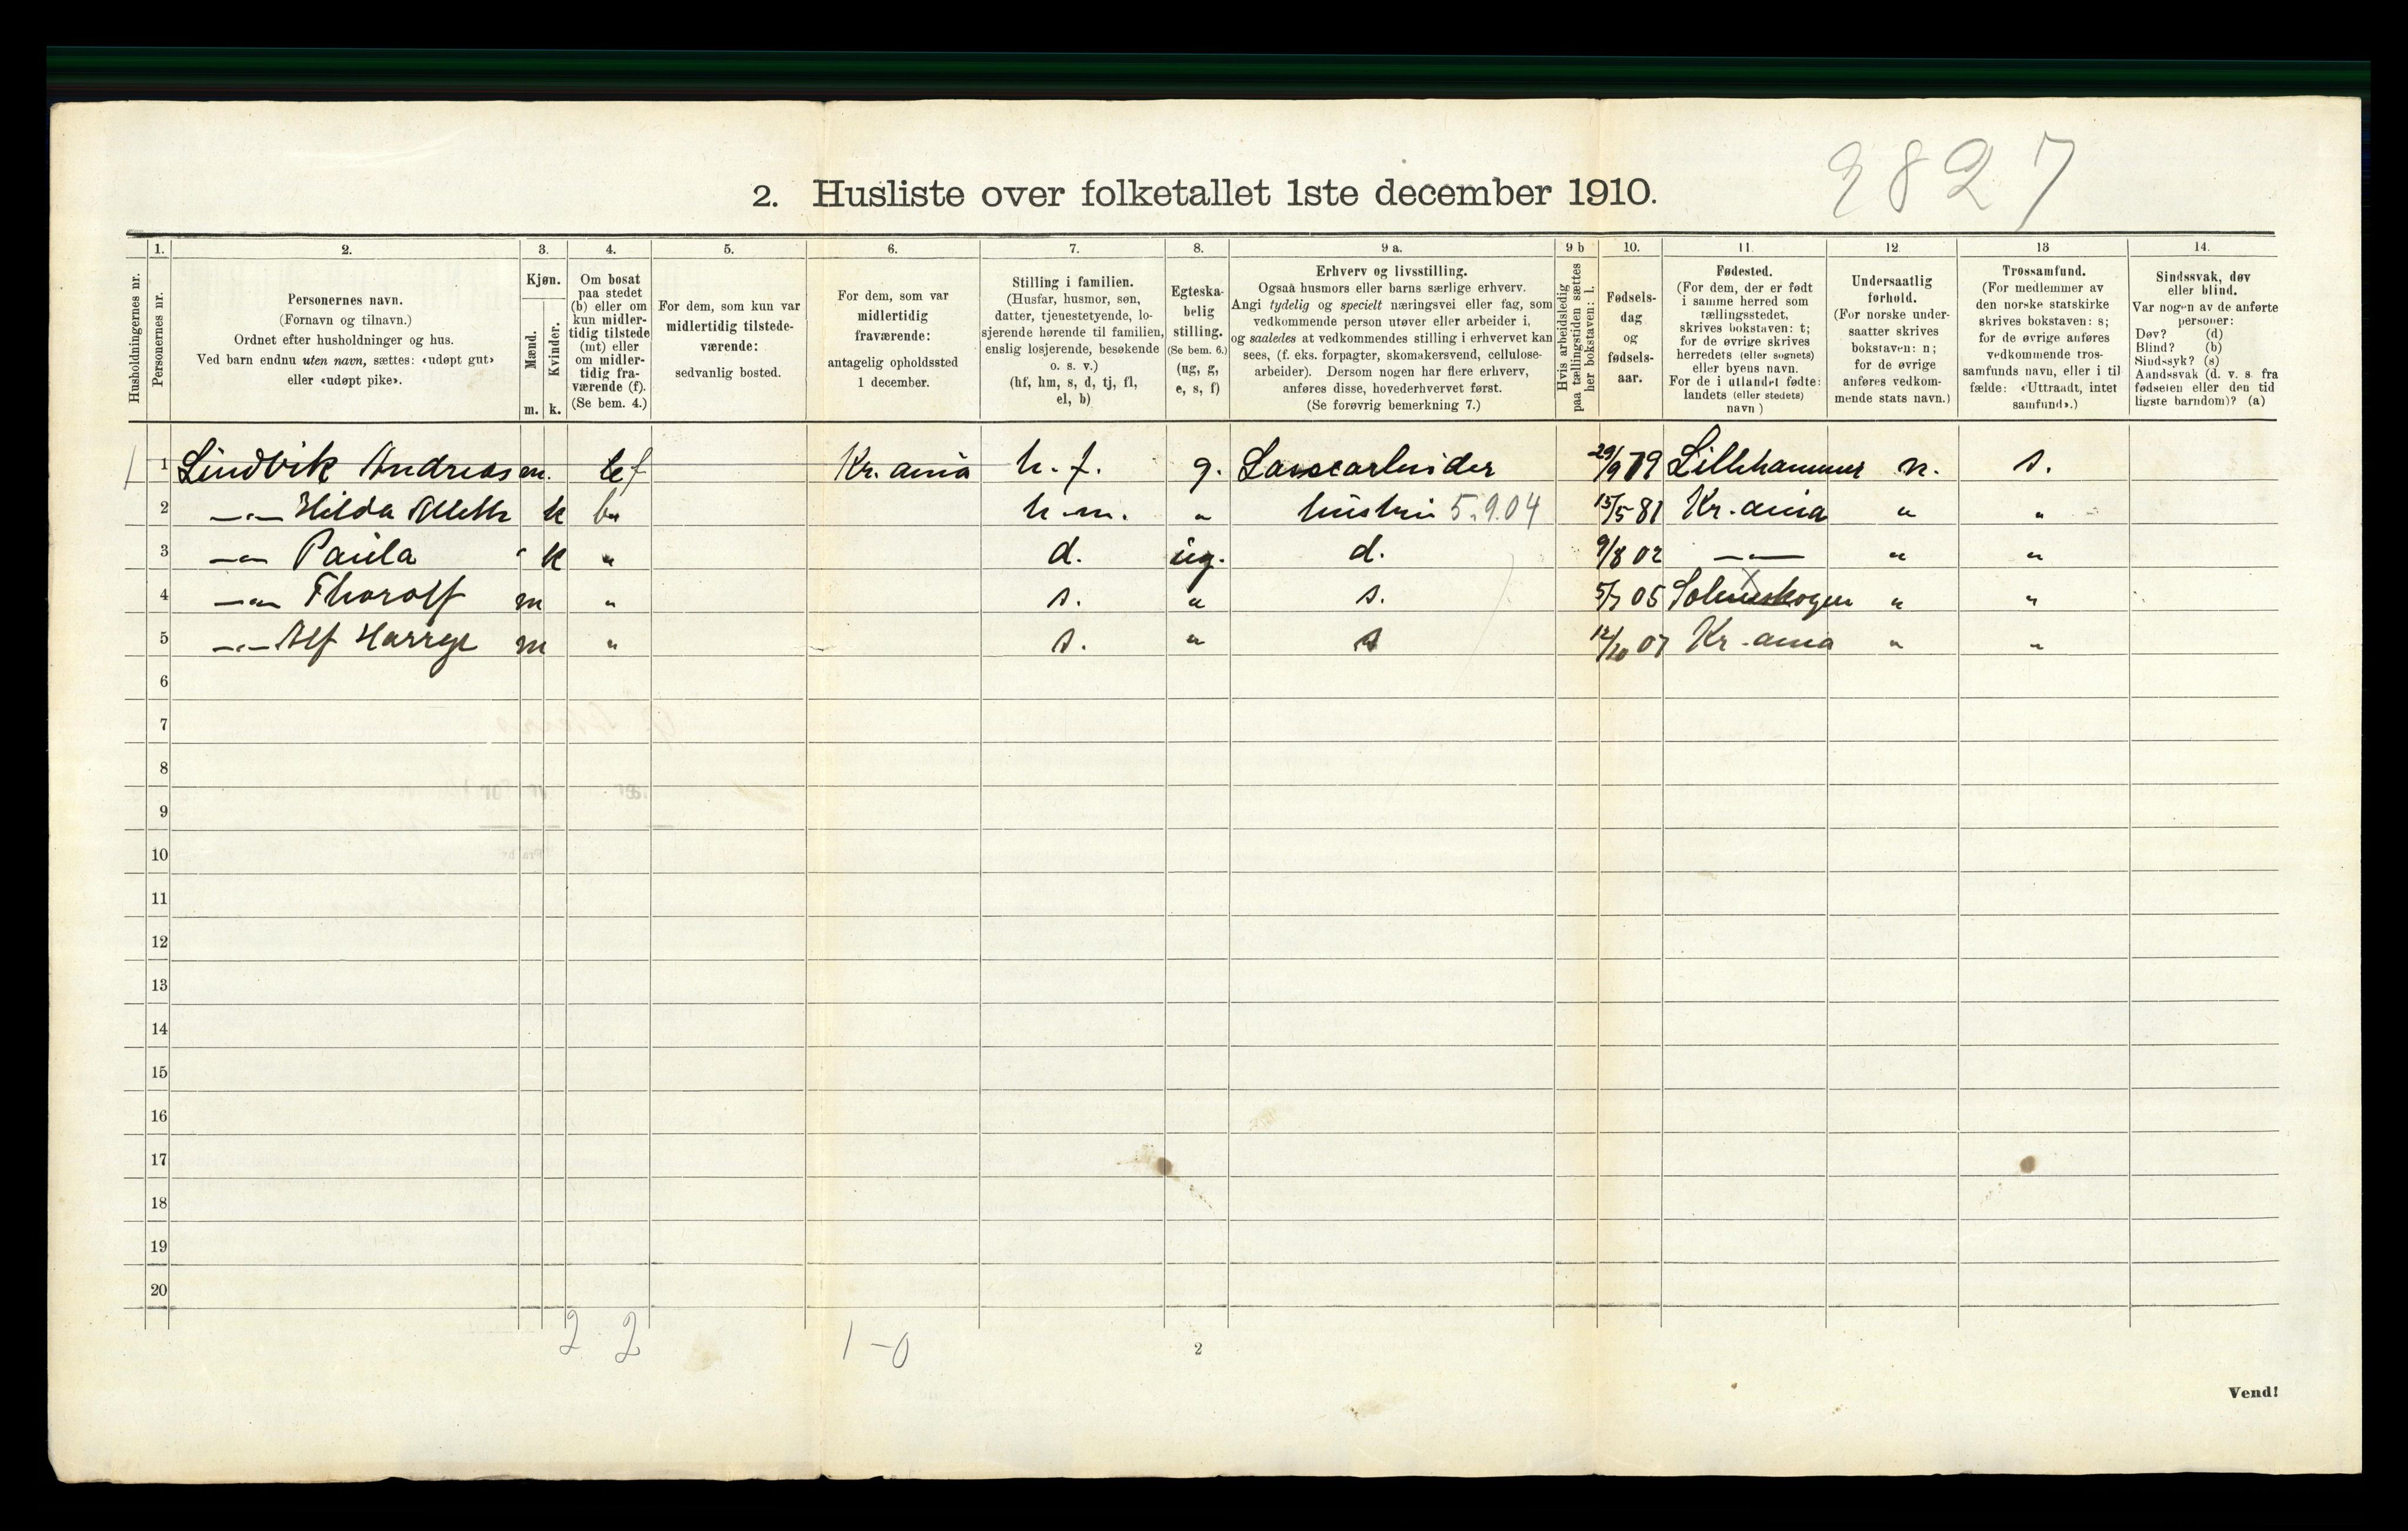 2827
2. Husliste over folketallet 1ste december 1910.
1. 2. 3. 4. 5. 6. 7. 8. 9 a. 9 b 10. 11. 12 13 14.
Husholdningernes nr.
Personernes nr.
Personernes navn.
(Fornavn og tilnavn.)
Ordnet efter husholdninger og hus.
Ved barn endnu uten navn, sættes: «udøpt gut»
eller «udøpt pike».
Kjøn.
Mænd.
Kvinder.
m. k.
Om bosat
paa stedet
(b) eller om
kun midler-
tidig tilstede
(mt) eller
om midler-
tidig fra-
værende (f).
(Se bem. 4.)
For dem, som kun var
midlertidig tilstede-
værende:
sedvanlig bosted.
For dem, som var
midlertidig
fraværende:
antagelig opholdssted
1 december.
Stilling i familien.
(Husfar, husmor, søn,
datter, tjenestetyende, lo-
sjerende hørende til familien,
enslig losjerende, besøkende
o. s. v.)
(hf, hm, s, d, tj, fl,
el, b)
Egteska-
belig
stilling.
(Se bem. 6.)
(ug, g,
e, s, f)
Erhverv og livsstilling.
Ogsaa husmors eller barns særlige erhverv.
Angi tydelig og specielt næringsvei eller fag, som
vedkommende person utøver eller arbeider i,
og saaledes at vedkommendes stilling i erhvervet kan
sees, (f. eks. forpagter, skomakersvend, cellulose-
arbeider). Dersom nogen har flere erhverv,
anføres disse, hovederhvervet først.
(Se forøvrig bemerkning 7.)
Hvis arbeidsledig
paa tællingstiden sættes
her bokstaven: l.
Fødsels-
dag
og
fødsels-
aar.
Fødested.
(For dem, der er født
i samme herred som
tællingsstedet,
skrives bokstaven: t;
for de øvrige skrives
herredets (eller sognets)
eller byens navn.
For de i utlandet fødte:
landets (eller stedets)
navn)
Undersaatlig
forhold.
(For norske under-
saatter skrives
bokstaven: n;
for de øvrige
anføres vedkom-
mende stats navn.)
Trossamfund.
(For medlemmer av
den norske statskirke
skrives bokstaven: s;
for de øvrige anføres
vedkommende tros-
samfunds navn, eller i til
fælde: «Uttraadt, intet
samfund».)
Sindssvak, døv
eller blind.
Var nogen av de anførte
personer:
Døv? (d)
Blind? (b)
Sindssyk? (s)
Aandssvak (d. v. s. fra
fødselen eller den tid
ligste barndom)? (a)
1 1 Lindvik Andreas m. f Kr. ania h. f. g. 29/9 79 Lillehammer n. s.
2 —"— Hilda k b h. m. " hustru 5.9.04 15/5 81 Kr. ania " "
3 —"— Paula k " d. ug. d. 9/8 02 —"— " "
4 —"— Thorolf m " s. " s. 5/7 05 " "
5 —"— Alf m " s. " s 12/10 07 Kr. ania " "
6
7
8
9
10
11
12
13
14
15
16
17
18
19
20
2 2 1 - 0
2
Vend!